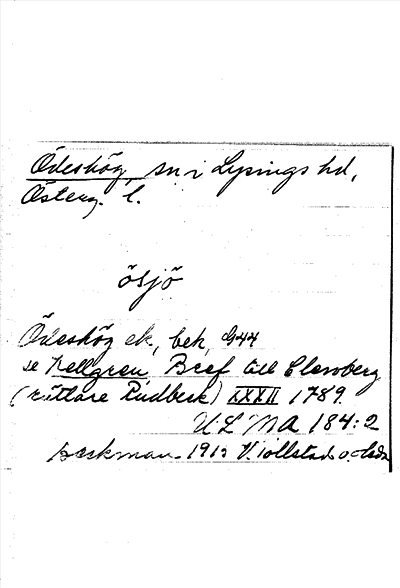 Ödeshög, sn i Lysings hd,
Österg. l.
ösjö
Ödeshög ek, bek, G44
se Kellgren, Bref till Clewberg
(rättare Rudbeck) XXXII 1789.
ULMA 184:2
Beckman 1912 V. Tollstad o.